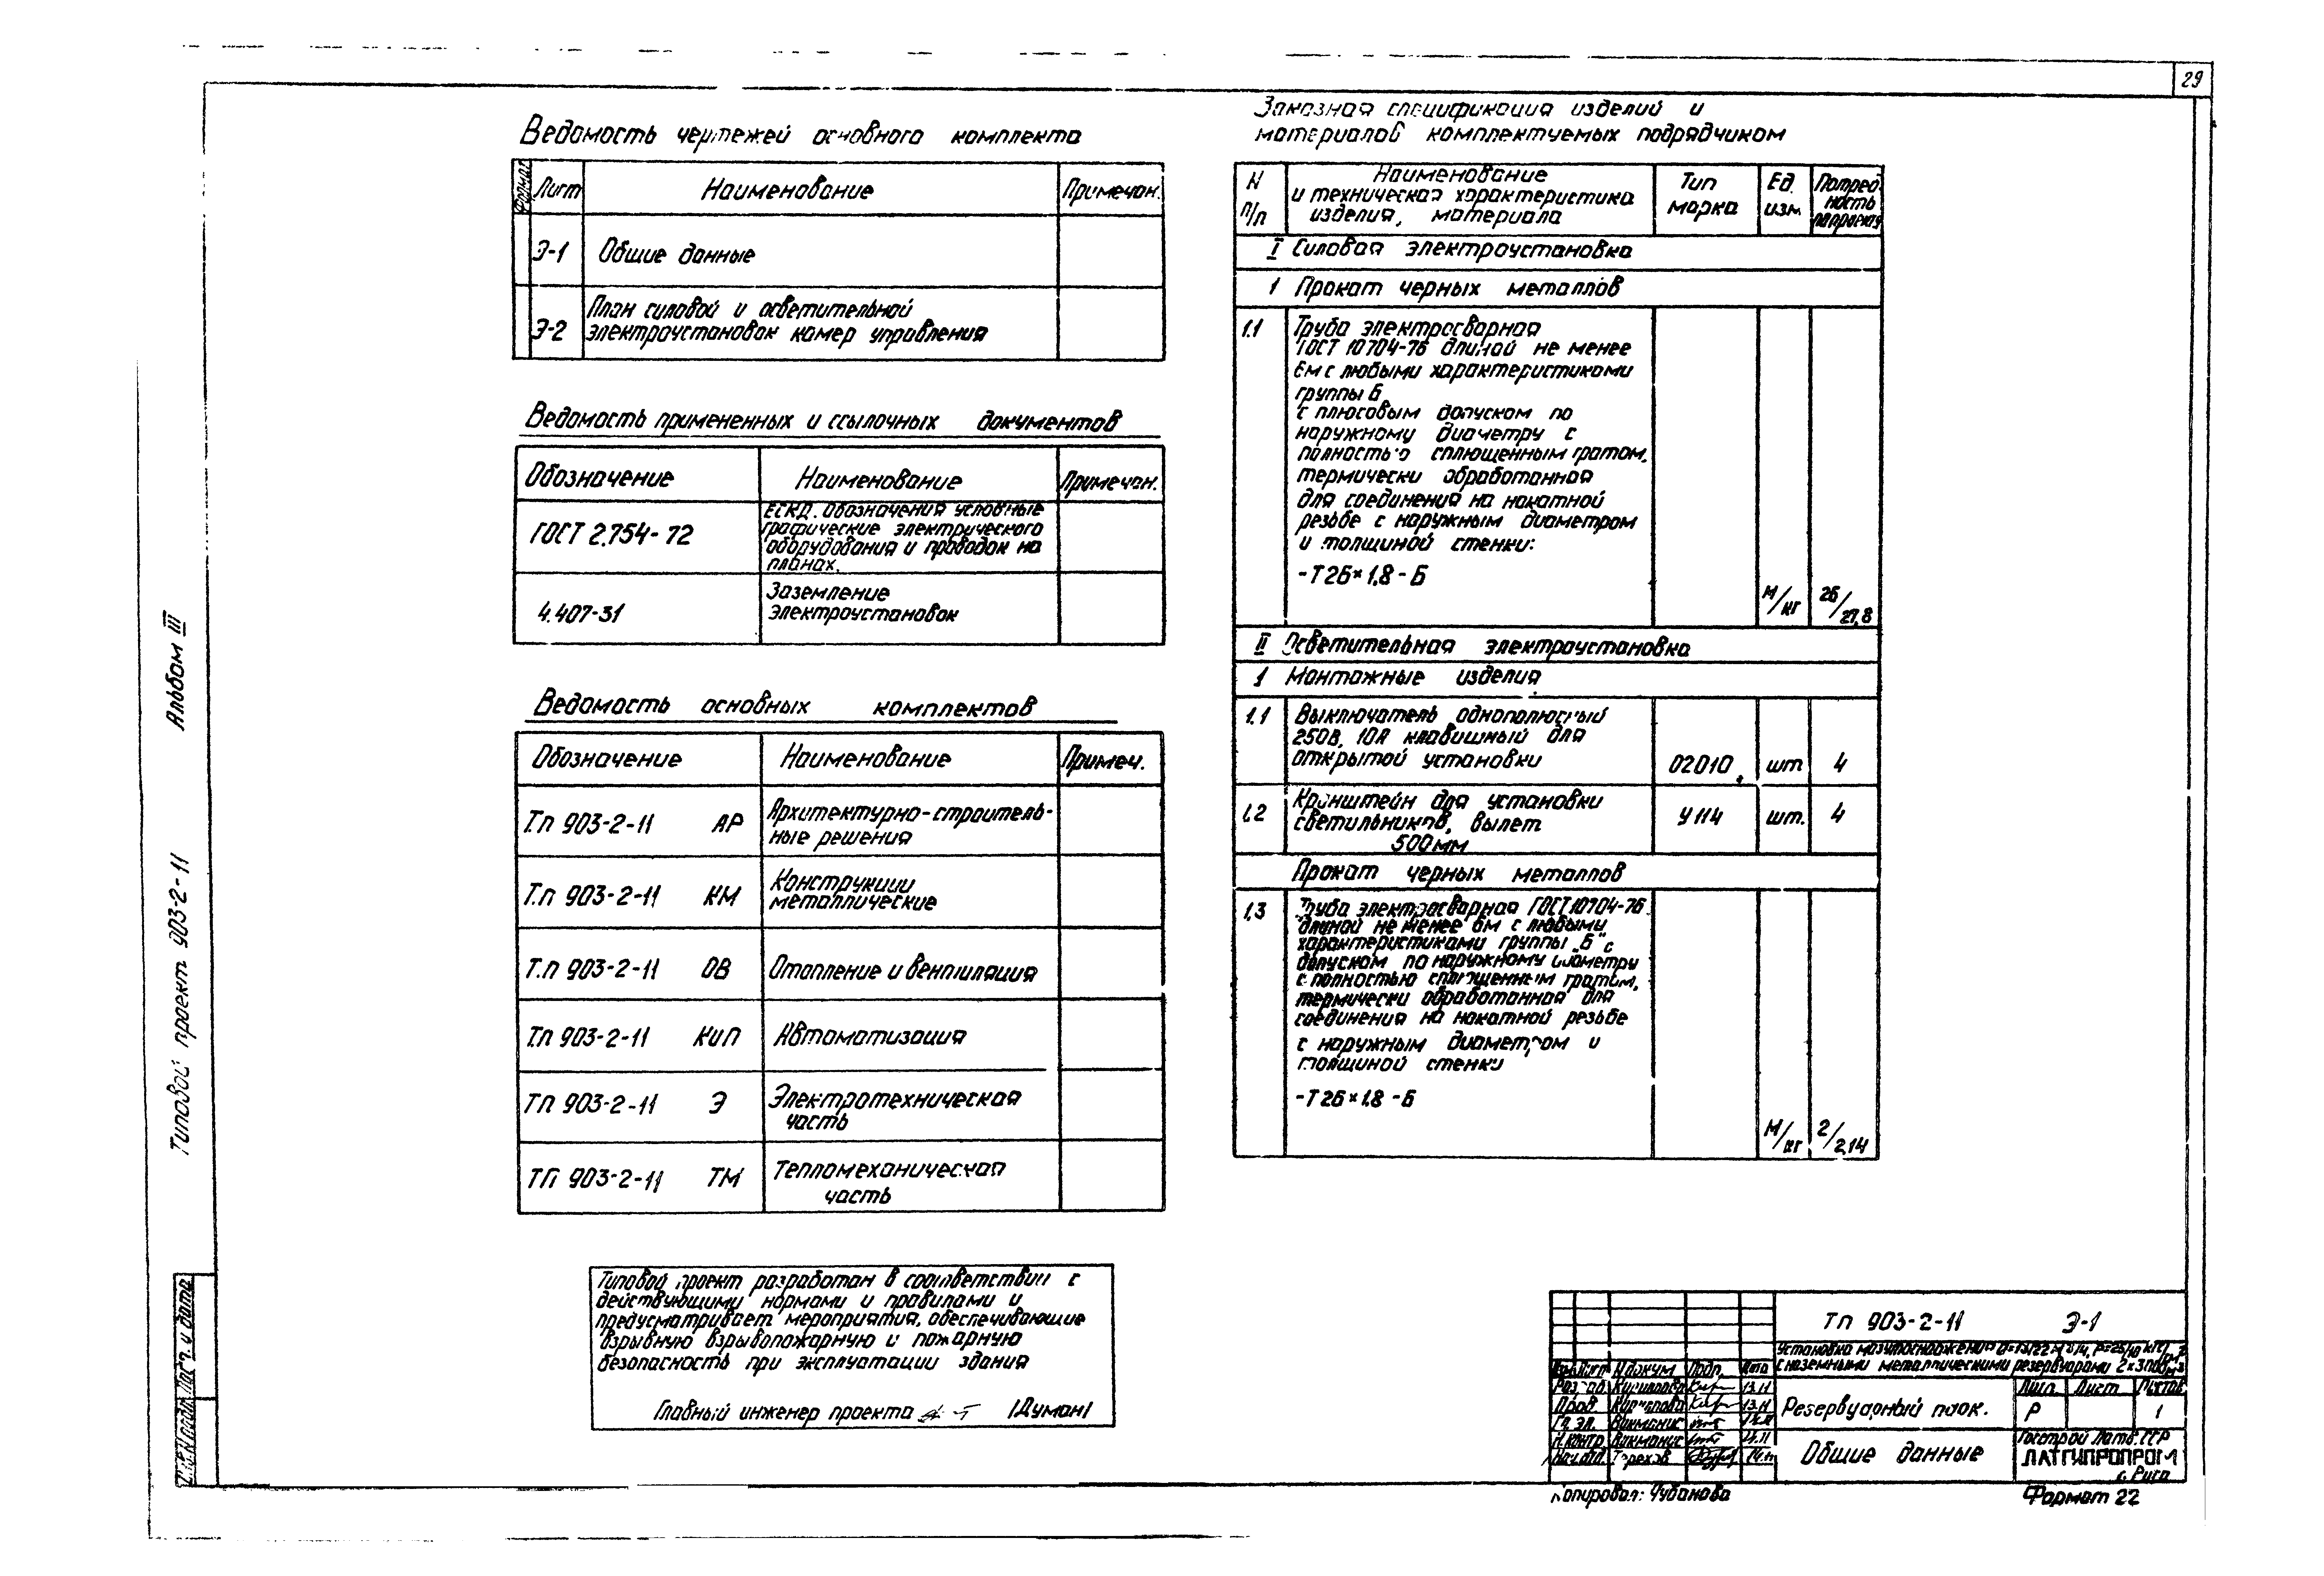 29
Ведомость чертежей основного комплекта
Формат Лист Наименование Примечан.
Э-1 Общие данные
Э-2 План силовой и осветительной
электроустановок камер управления
Ведомость примененных и ссылочных документов
Обозначение Наименование Примечан.
ГОСТ 2.754-72 ЕСКД. Обозначения условные
графические электрического
оборудования и проводок на
планах.
4.407-31 Заземление
электроустановок
Ведомость основных комплектов
Обозначение Наименование Примеч.
Т.п 903-2-11 АР Архитектурно-строитель-
ные решения
Т.п 903-2-11 КМ Конструкции
металлические
Т.п 903-2-11 ОВ Отопление и вентиляция
Т.п 903-2-11 КиП Автоматизация
ТП 903-2-11 Э Электротехническая
часть
ТП 903-2-11 ТМ Тепломеханическая
часть
Типовой проект разработан в соответствии с
действующими нормами и правилами и
предусматривает мероприятия, обеспечивающие
взрывную взрывопожарную и пожарную
безопасность при эксплуатации здания
Главный инженер проекта /Думан/
Заказная спецификация изделий и
материалов комплектуемых подрядчиком
N
п/п
Наименование
и техническая характеристика
изделия, материала
Тип
марка
Ед.
изм.
Потреб-
ность
по проекту
I Силовая электроустановка
1 Прокат черных металлов
1.1 Труба электросварная
ГОСТ 10704-76 длиной не менее
6м с любыми характеристиками
группы Б
с плюсовым допуском по
наружному диаметру с
полностью сплющенным гратом,
термически обработанная
для соединения на накатной
резьбе с наружным диаметром
и толщиной стенки:
-Т26×1.8-Б
м/кг 26/27,8
II Осветительная электроустановка
1 Монтажные изделия
1.1 Выключатель однополюсный
250В, 10А клавишный для
открытой установки 02010 шт 4
1.2 Кронштейн для установки
светильников, вылет
500мм У114 шт. 4
Прокат черных металлов
1.3 Труба электросварная ГОСТ 10704-76
длиной не менее 6м с любыми
характеристиками группы „Б" с
допуском по наружному диаметру
с полностью сплющенным гратом,
термически обработанная для
соединения на накатной резьбе
с наружным диаметром и
толщиной стенки
-Т26×1.8-Б
м/кг 2/2,14
Альбом III
Типовой проект 903-2-11
ТП 903-2-11 Э-1
с наземными металлическими резервуарами
N докум. Подп. Дата
Разраб. Кирилова 13.11
Пров. Кирилова 13.11
Гл. эл. Викманис
Н.контр. Викманис
Нач.отд. Терехов
Резервуарный парк.
Лит. Лист Листов
Р 1
Общие данные
Госстрой Латв. ССР
ЛАТГИПРОПРОМ
г. Рига
Копировал: Чубанова
Формат 22